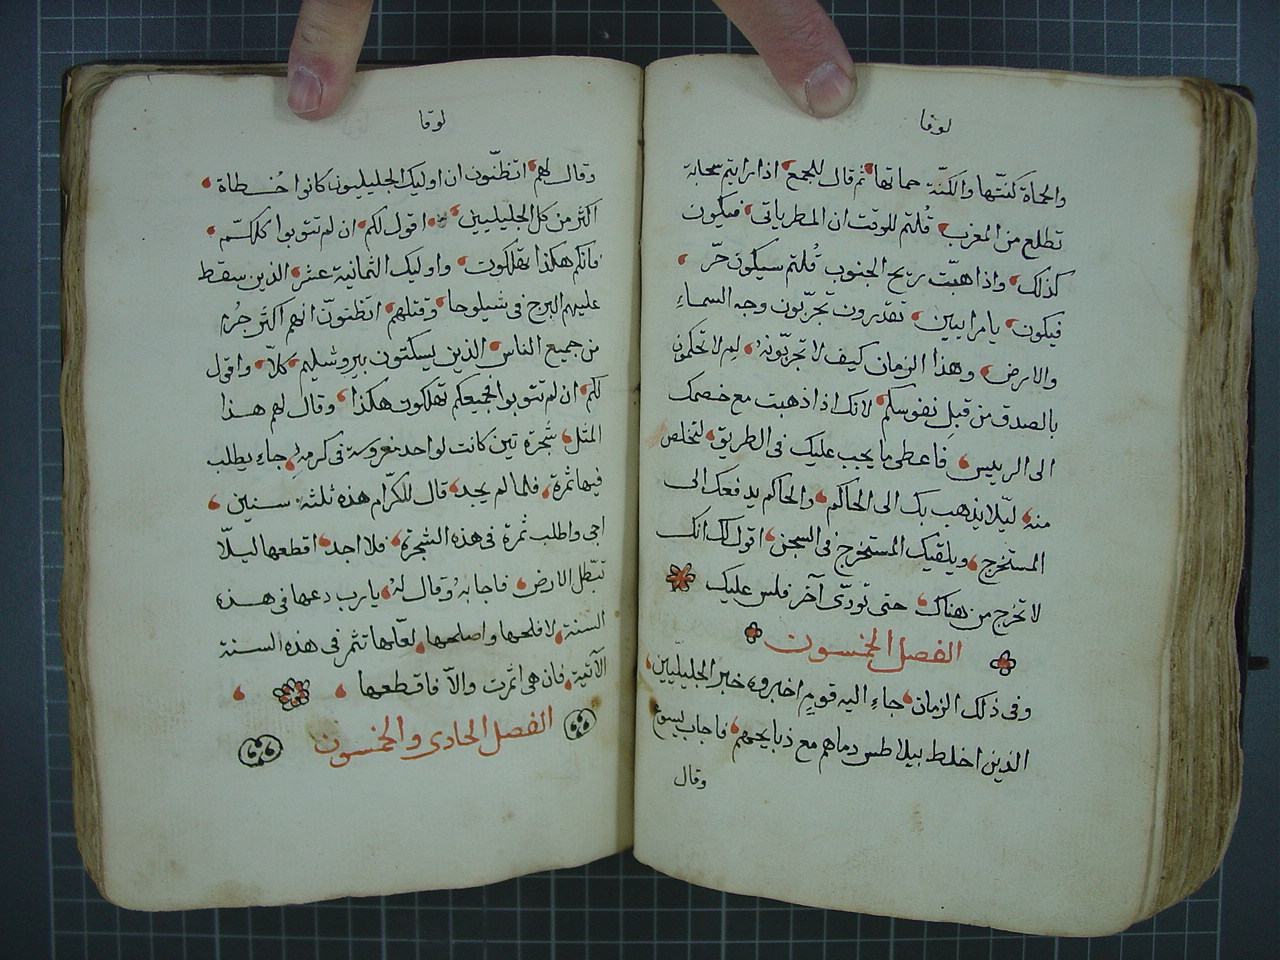 لوقا
والحماة كنتها والكنّة حماتها ثم قال للجمع اذا رايتم سحابة
تطلع من المغرب قُلتم للوقت ان المطر ياتى فيكون
كذلك واذا هبّت ريح الجنوب قُلتم سيكون حّر
فيكون يا مراييين تقدرون تجرّبون وجه السماءِ
والارض وهذا الزمان كيف لا تجربّونهُ لِم لا تحكمون
بالصدق من قبل نفوسكم لانك اذا ذهبت مع خصمك
الى الرييس فاعطى ما يجب عليك فى الطريق لتخلص
منه ليّلا يذهب بك الى الحاكم والحاكم يدفعك الى
المستخرج ويلقيك المستخرج فى السجن اقول لك انك
لا تخرج من هناك حتى تودّى آخر فلس عليك
الفصل الخمسون
وفى ذلك الزمان جاءِ اليه قوم اخبروه خبر الجليليّين
الذين اخلط بيلاطس دماهم مع ذبايحهم فاجاب يسوع
وقال
لوقا
وقال لهم اتظنّون ان اوليك الجليليون كانوا خُطاة
اكثر من كل الجليليين اقول لكم ان لم تتوبوا كلكم
فانكم هكذا تهلكون واوليك الثمانية عشر الذين سقط
عليهم البرج فى شيلوحا وقتلهم اتظنّون انهم اكثر جرُم
من جميع الناس الذين يسكنون بيروشليم كلّا واقول
لكم ان لم تتوبوا فجميعكم تهلكون هكذا وقال لهم هذا
المثل شجرة تين كانت لواحد مغروسة فى كرمه جاء يطلب
فيها ثمرة فلما لم يجد قال للكرّام هذه ثلثة سنين
اجى واطلب ثمرة فى هذه الشجرة فلا اجد اقطعها ليلّا
تبّطل الارض فاجابهُ وقال لهُ يا رب دعها فى هذه
السنة لافلحها واصلحها لعّلها تثمر فى هذه السنة
الآتية فان هى اثمرت والّا فاقطعها
الفصل الحادى والخمسون